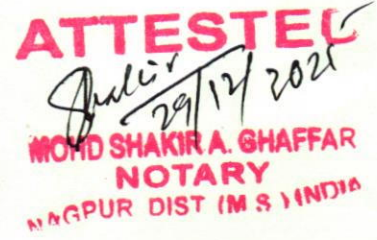 ATTESTED
Shakir
29/12/2021
MOHD SHAKIR A. GHAFFAR
NOTARY
NAGPUR DIST (M S) INDIA